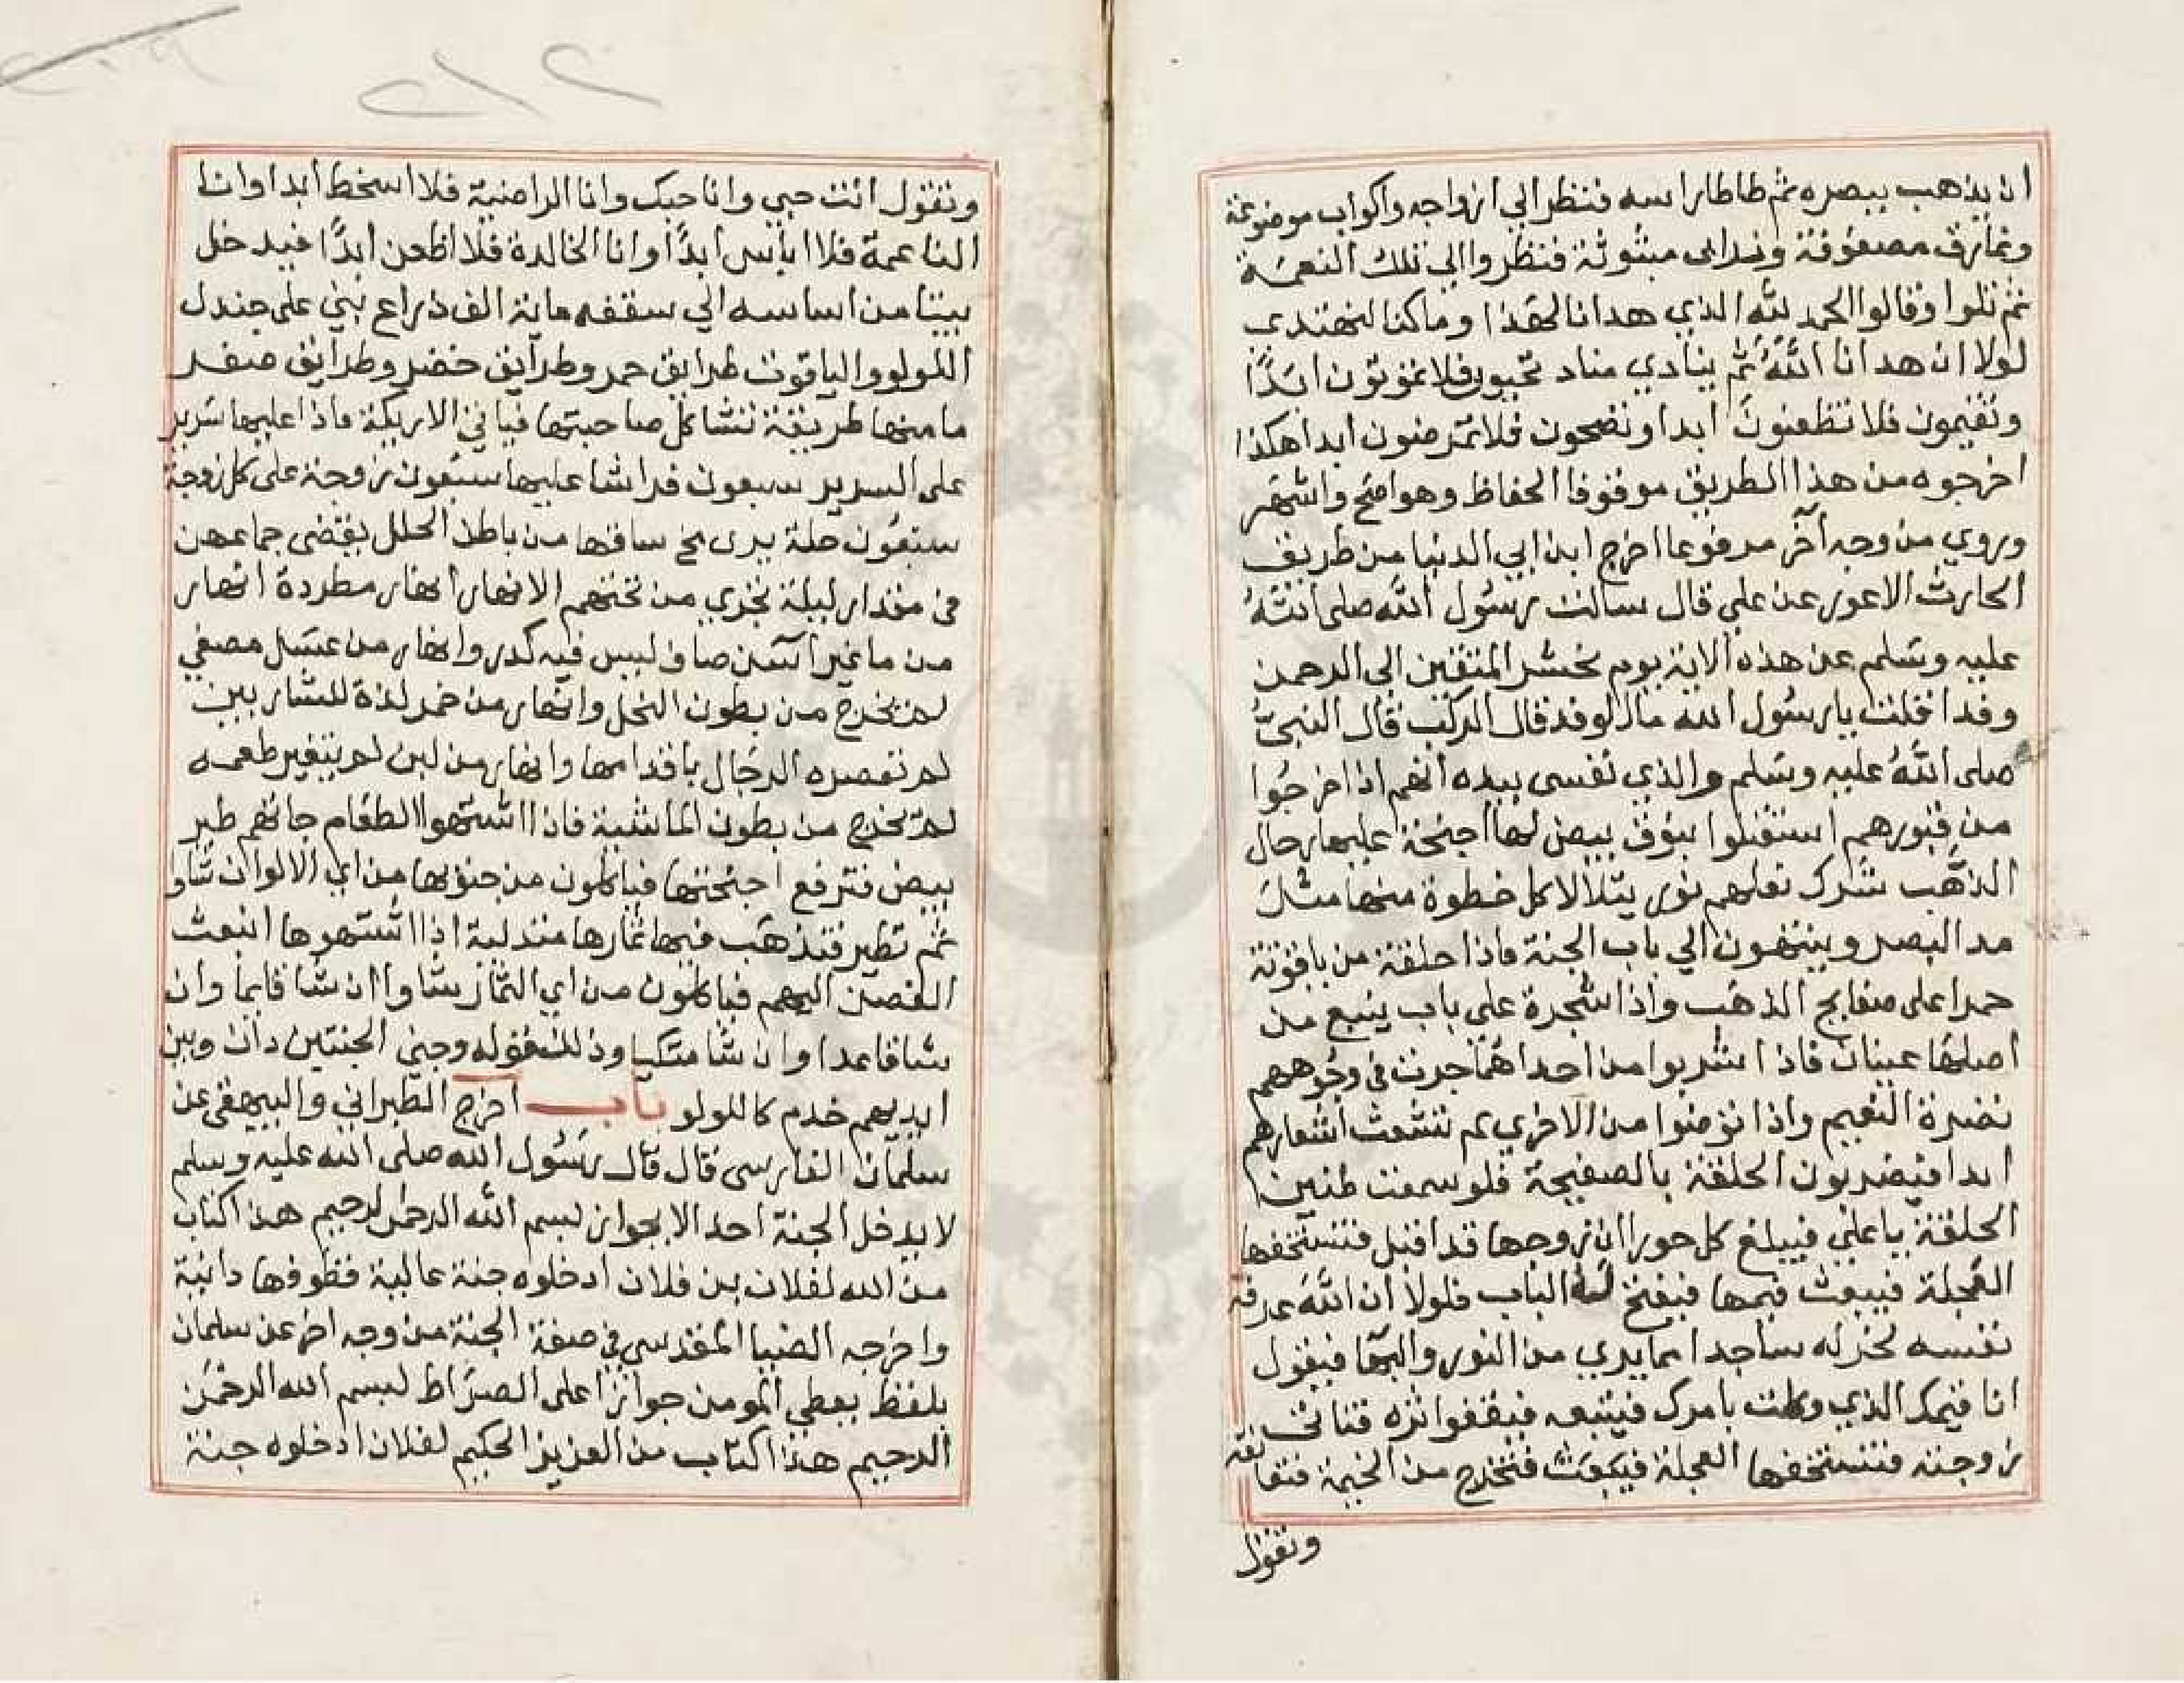 ان يذهب ببصره ثم طاطا راسه فنظر الي ازواجه واكواب موضوعة
ونمارق مصفوفة وزرابى مبثوثة فنظروا الي تلك النعمة
ثم تلوا وقالوا الحمد لله الذي هدانا لهذا وما كنا لنهتدي
لولا ان هدانا الله ثم ينادي مناد تحيون فلا تموتون ابدًا
وتقيمون فلا تظعنون ابدا وتصحون فلا تمرضون ابدا هكذا
اخرجوه من هذا الطريق موقوفا الحفاظ وهو اصح واشهر
وروي من وجه آخر مرفوعا اخرج ابن ابي الدنيا من طريق
الحارث الاعور عن علي قال سالت رسول الله صلى الله
عليه وسلم عن هذه الاية يوم نحشر المتقين الى الرحمن
وفدا قلت يا رسول الله ما الوفد قال الركب قال النبي
صلى الله عليه وسلم والذي نفسى بيده انهم اذا خرجوا
من قبورهم استقبلوا بنوق بيض لها اجنحة عليها رحال
الذهب شرك نعلهم نور يتلالا كل خطوة منها مثل
مد البصر وينتهون الي باب الجنة فاذا حلقة من ياقوتة
حمرا على صفايح الذهب واذا شجرة على باب ينبع من
اصلها عينان فاذا اشربوا من احداهما جرت في وجوههم
نضرة النعيم واذا توضوا من الاخري لم تشعث أشعارهم
ابدا فيضربون الحلقة بالصفيحة فلو سمعت طنين
الحلقة يا علي فيبلغ كل حورا ان زوجها قد اقبل فتستخفها
العجلة فيبعث قيمها فيفتح له الباب فلولا ان الله عرفه
نفسه لخر له ساجدا مما يري من النور والبها فيقول
انا قيمك الذي وكلت بامرك فيتبعه فيقفوا اثره فتاتى
زوجته فتستخفها العجلة فيبعث فتخرج من الخيمة فتعانقه
وتقول
وتقول انت حبي وانا حبك وانا الراضية فلا اسخط ابدا وانا
الناعمة فلا ابأس ابدًا وانا الخالدة فلا اظعن ابدًا فيدخل
بيتا من اساسه الي سقفه مائة الف ذراع بني على جندل
اللولو والياقوت طرايق حمر وطرايق خضر وطرايق صفر
ما منها طريقة تشاكل صاحبتها فياتي الاريكة فاذا عليها سرير
على السرير سبعون فراشا عليها سبعون زوجة على كل زوجة
سبعون حلة يرى مخ ساقها من باطن الحلل يقضى جماعهن
في مقدار ليلة تجري من تحتهم الانهار أنهار مطردة انهار
من ما غير آسن صاف ليس فيه كدر وانهار من عسل مصفي
لم تخرج من بطون النحل وانهار من خمر لذة للشاربين
لم تعصره الرجال باقدامها وانهار من لبن لم يتغير طعمه
لم تخرج من بطون الماشية فاذا اشتهوا الطعام جائهم طير
بيض فترفع اجنحتها فياكلون من جنوبها من اي الالوان شاوا
ثم تطير فتذهب فيها ثمارها متدلية اذا اشتهوها انبعث
الغصن اليهم فياكلون من اي الثمار شاوا ان شا قايما وان
شا قاعدا وان شا متكيا وذلك قوله وجني الجنتين دان وبين
ايديهم خدم كاللولو باب اخرج الطبراني والبيهقي عن
سلمان الفارسى قال قال رسول الله صلى الله عليه وسلم
لا يدخل الجنة احد الا بجواز بسم الله الرحمن الرحيم هذا كتاب
من الله لفلان بن فلان ادخلوه جنة عالية قطوفها دانية
واخرجه الضيا المقدسي في صفة الجنة من وجه اخر عن سلمان
بلفظ يعطي المومن جوازا على الصراط لبسم الله الرحمن
الرحيم هذا كتاب من العزيز الحكيم لفلان ادخلوه جنة